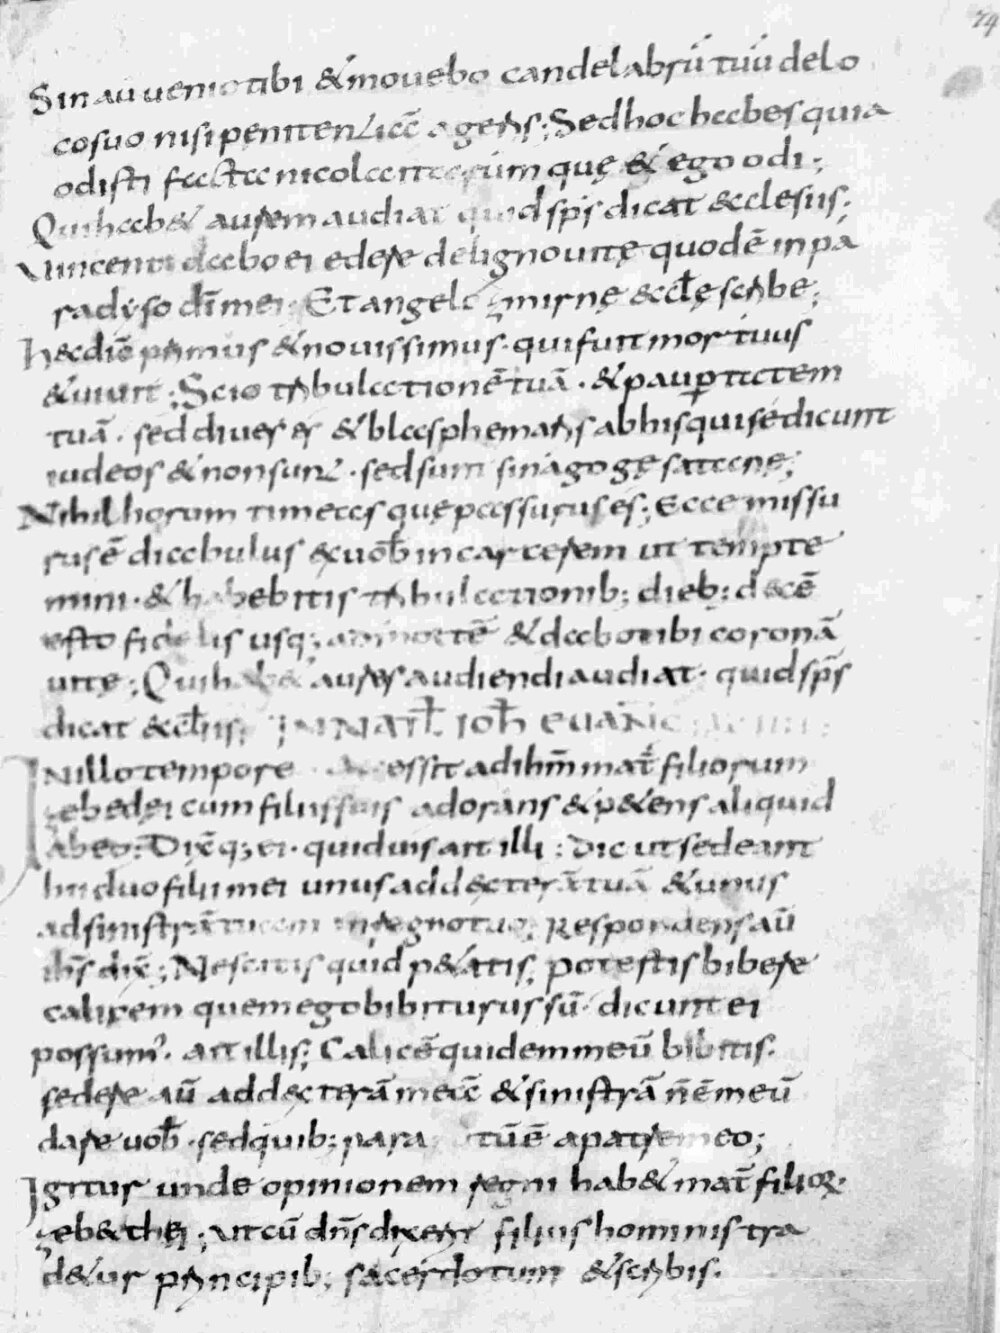 74
Sin aū uenio tibi & mouebo candelabrū tuū delo
cosuo nisi penitentiā agens; Sed hoc habes quia
odisti facta nicolaitarum quę & ego odi;
Qui hab& aurem audiat quid sps̄ dicat ecclesiis;
Uincenti dabo ei edere de ligno uitę quod ē in pa
radyso dī mei; Et angelo zmirnę eccłę scribe;
Hec diē primus & nouissimus · qui fuit mortuus
& uiuit; Scio tribulationē tuā · & paupertatem
tuā · sed diues es & blasphemaris ab his qui se dicunt
iudeos & non sunt · sed sunt sinagogę satanę;
Nihil horum timeas quę passurus es; Ecce missu
rus ē diabulus ex uob̄ in carcerem ut tempte
mini · & habebitis tribulationib; dieb; decē
esto fidelis usq; ad mortē & dabo tibi coronā
uitę; Qui hab& aures audiendi audiat · quid sps̄
dicat eccłiis; IN NAT̄L IOH̄ EUANG
In illo tempore Accessit ad ihm̄ mat̄ filiorum
zebedęi cum filiis suis adorans & p&ens aliquid
ab eo; Dix̄ q; ei · quid uis ait illi; Dic ut sedeant
hii duo filii mei unus ad dexterā tuā & unus
ad sinistrā tuam in regno tuo; Respondens aū
ihs̄ dix̄; Nescitis quid p&itis; potestis bibere
calicem quem ego bibiturus sū · dicunt ei
possum' · ait illis; Calicē quidem meū bibitis ·
sedere aū ad dexterā meā & sinistrā n̄ ē meū
dare uob̄ · sed quib; paratū ē a patre meo;
Igitur unde opinionem regni hab& mat̄ filioꝝ ·
zeb&hęi; ut cū dn̄s dixerit filius hominis tra
d&ur principib; sacerdotum & scribis ·